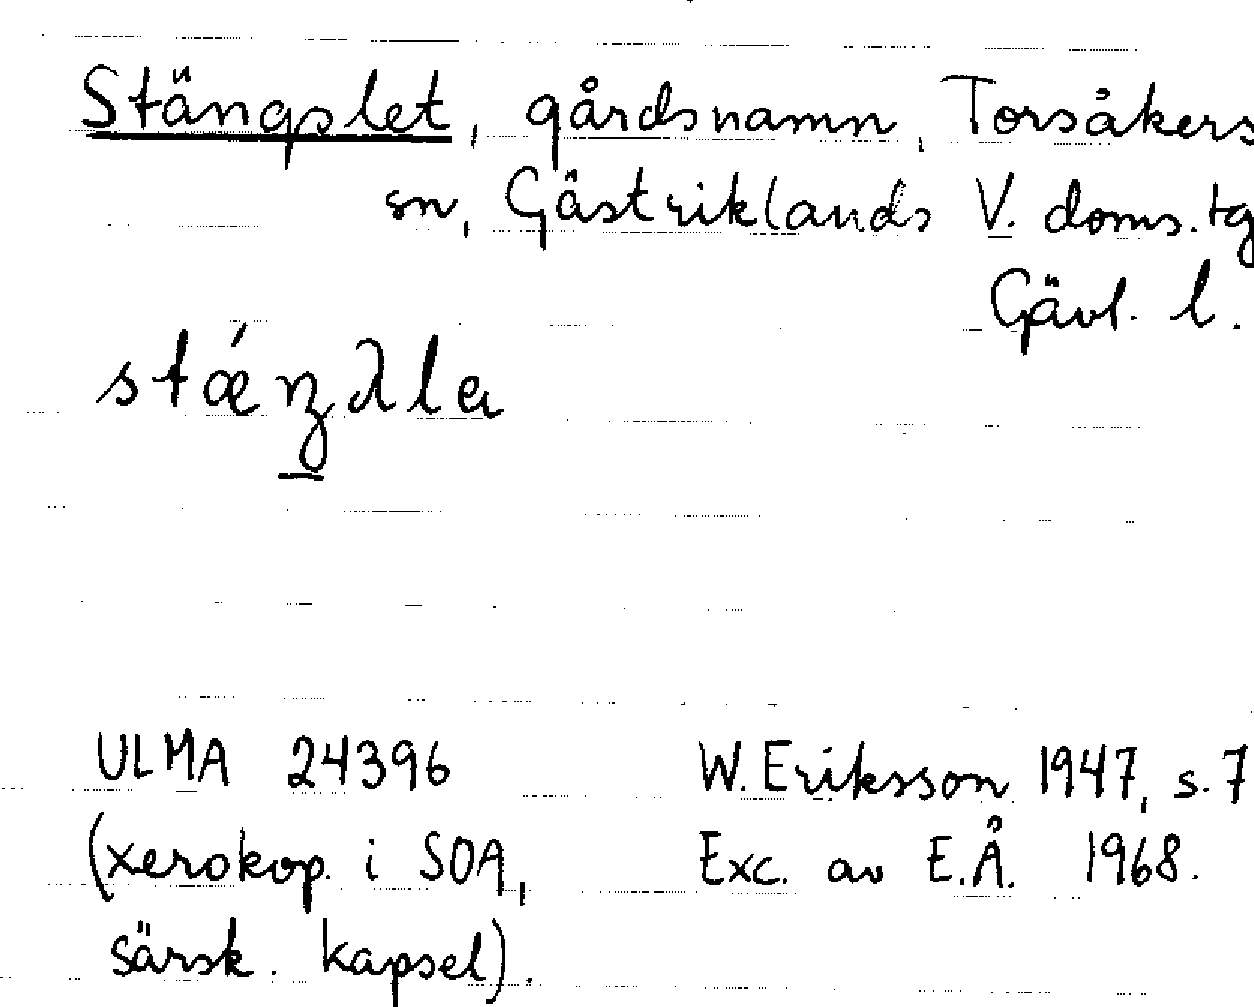 Stängslet, gårdsnamn, Torsåkers
sn, Gästriklands V. doms. tg
Gävl. l.
ULMA 24396 W. Eriksson 1947, s. 7
(xerokop. i SOA, Exc. av E.Å. 1968.
särsk. kapsel).